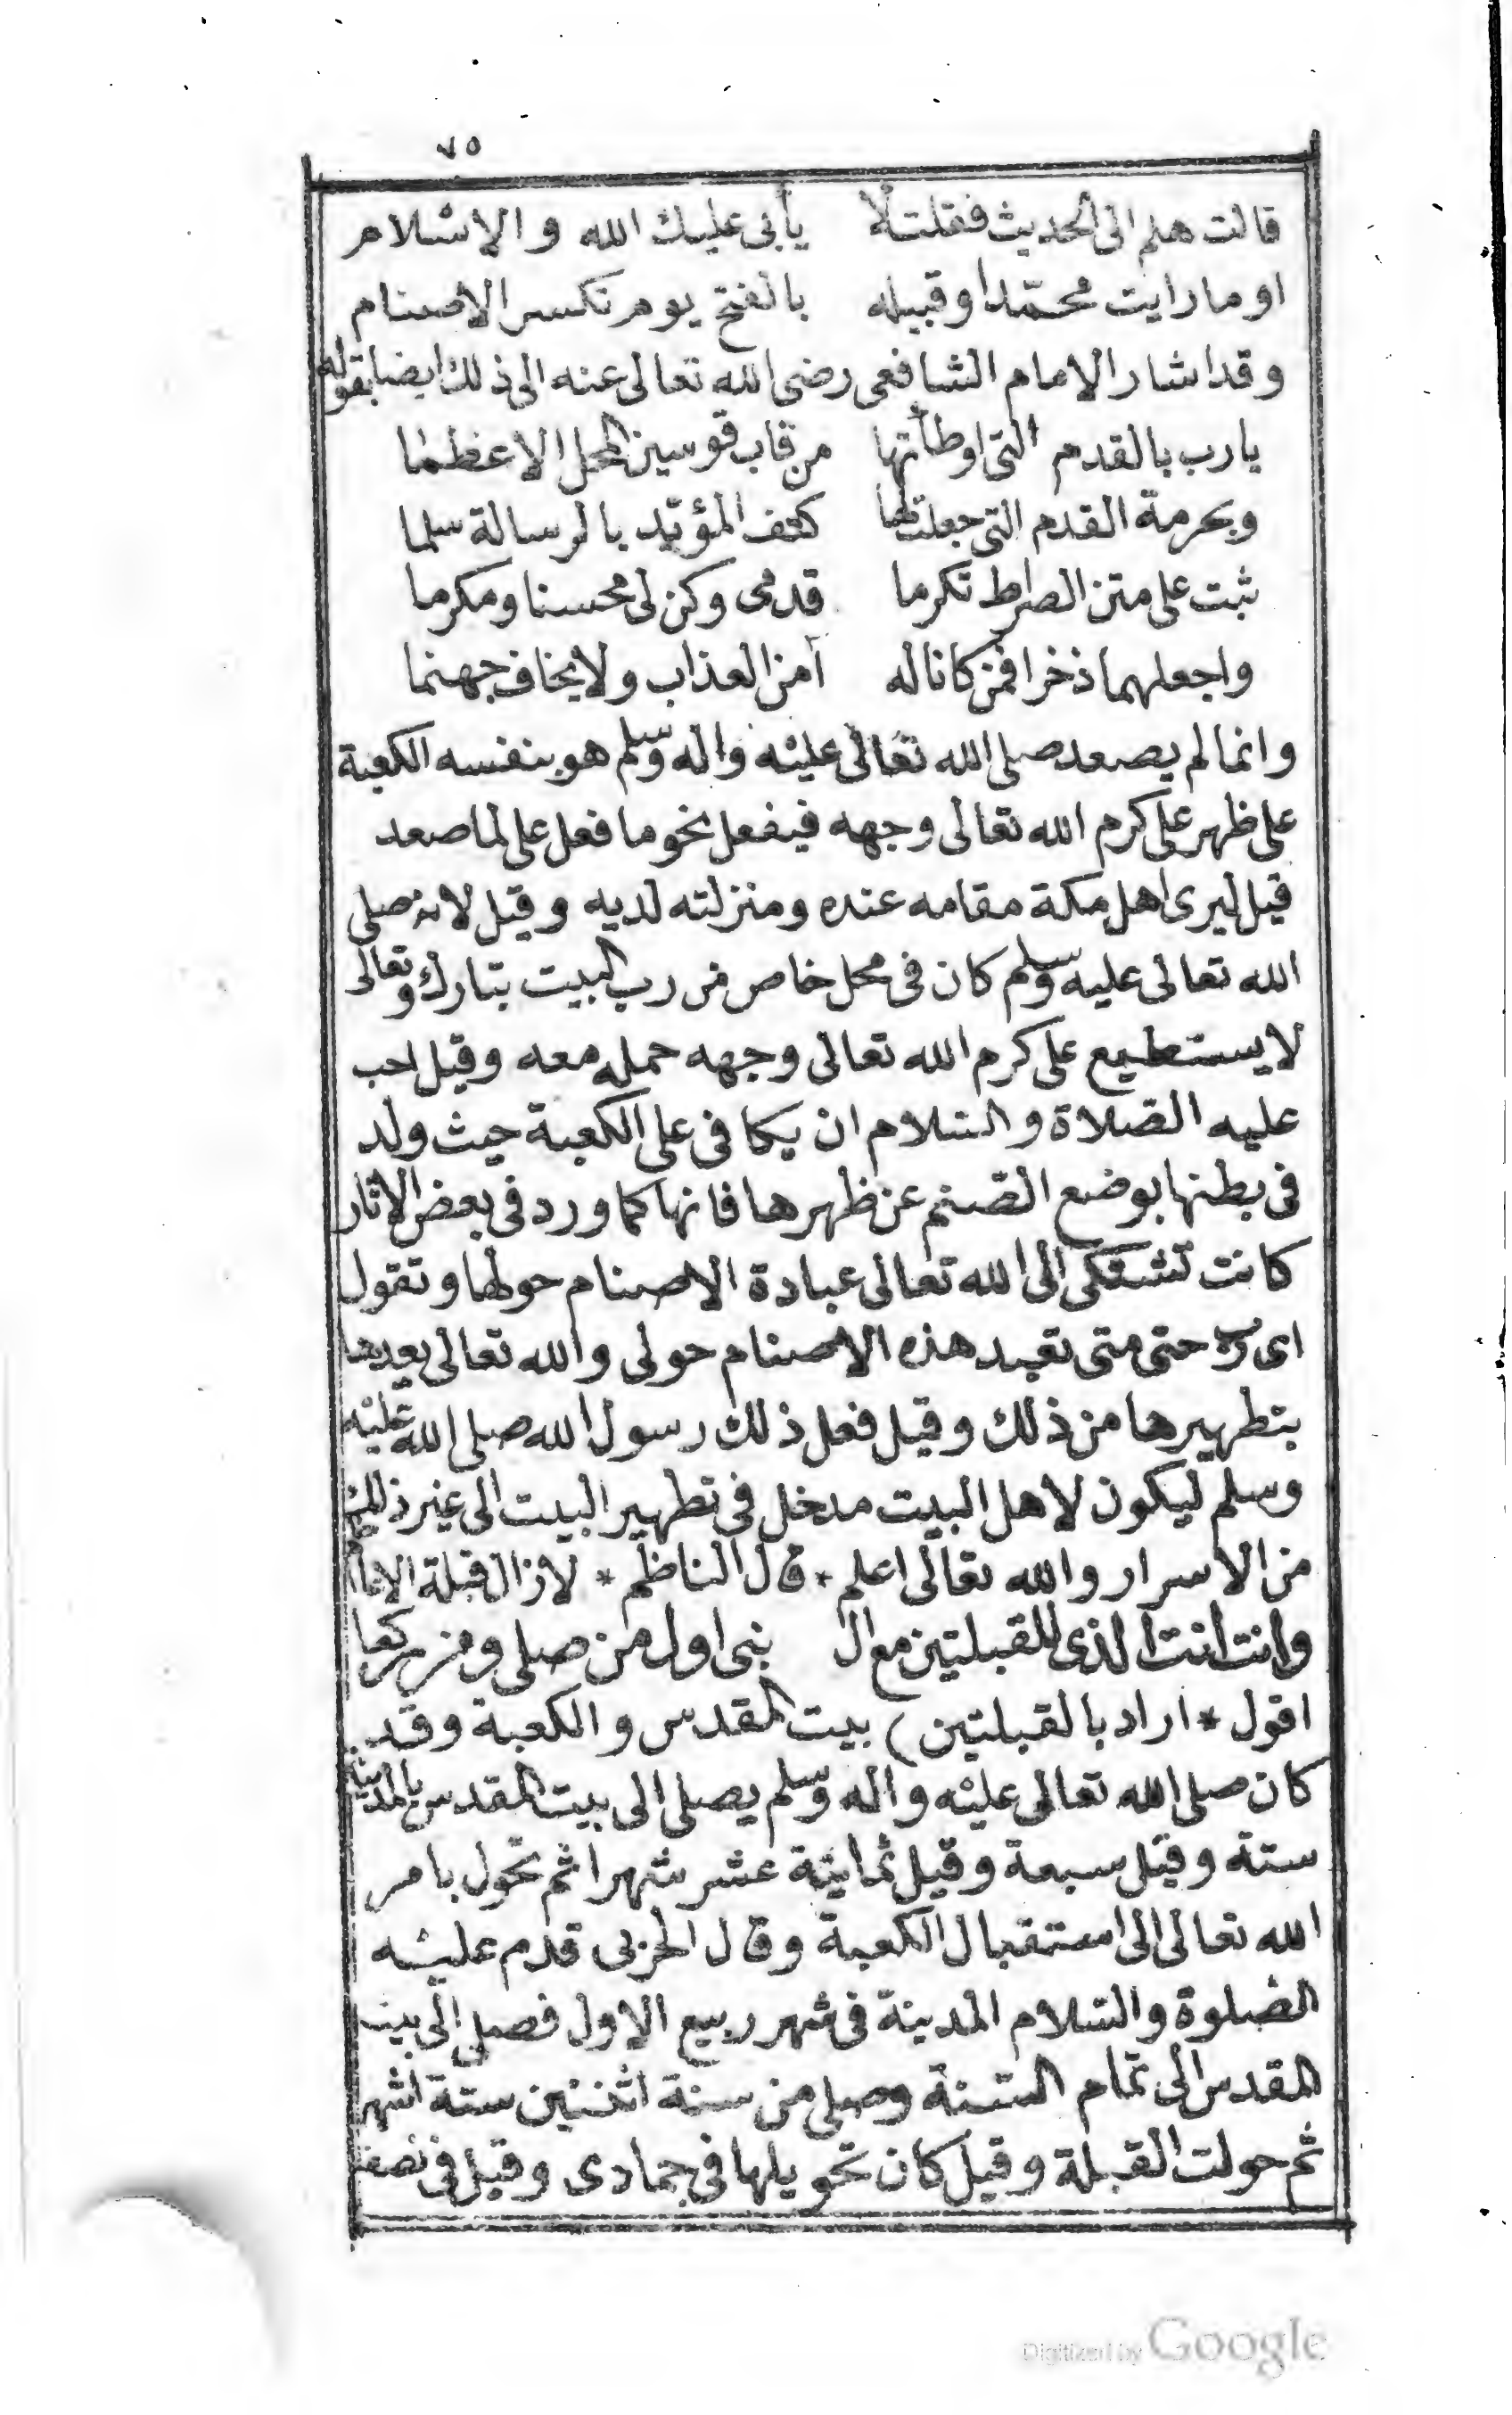 ٧٥
قالت هلم الى الحديث فقلت لا يأبى عليك الله والاسلام
او ما رايت محمّدا وقبيله بالفتح يوم تكسر الاصنام
وقد اشار الامام الشافعى رضى الله تعالى عنه الى ذلك ايضا بقوله
يارب بالقدم التى اوطأتها من قاب قوسين المحل الاعظما
وبحرمة القدم التى جعلت لها كتف المؤيّد بالرسالة سلما
ثبت على متن الصراط تكرما قدمى وكن لى محسنا ومكرما
واجعلهما ذخرا فمن كانا له أمن العذاب ولا يخاف جهنما
وانما لم يصعد صلى الله تعالى عليه واله وسلم هو بنفسه الكعبة
على ظهر على كرم الله تعالى وجهه فيفعل نحو ما فعل على لما صعد
قيل ليرى اهل مكة مقامه عنده ومنزلته لديه وقيل لانه صلى
الله تعالى عليه وسلم كان فى محل خاص من رب البيت تبارك وتعالى
لا يستطيع على كرم الله تعالى وجهه حمله معه وقيل احب
عليه الصّلاة والسّلام ان يكافى على الكعبة حيث ولد
فى بطنها بوضع الصّنم عن ظهرها فانها كما ورد فى بعض الاثار
كانت تشتكى الى الله تعالى عبادة الاصنام حولها وتقول
اى رب حتى متى تعبد هذه الاصنام حولى والله تعالى يعدها
بتطهيرها من ذلك وقيل فعل ذلك رسول الله صلى الله عليه
وسلم ليكون لاهل البيت مدخل فى تطهير البيت الى غير ذلك
من الاسرار والله تعالى اعلم * قال الناظم * لازال قبلة الانام
وانت انت الذى للقبلتين مع ال نبى اول من صلى ومن ركعا
اقول * اراد بالقبلتين) بيت المقدس والكعبة وقد
كان صلى الله تعالى عليه واله وسلم يصلى الى بيت المقدس بالمدينة
ستة وقيل سبعة وقيل ثمانية عشر شهرا ثم تحول بامر
الله تعالى الى استقبال الكعبة وقال الحربى قدم عليه
الصلوة والسّلام المدينة فى شهر ربيع الاول فصلى الى بيت
المقدس الى تمام السّنة وصلى من سنة اثنتين ستة اشهر
ثم حولت القبلة وقيل كان تحويلها فى جمادى وقيل فى نصف
Digitized by Google